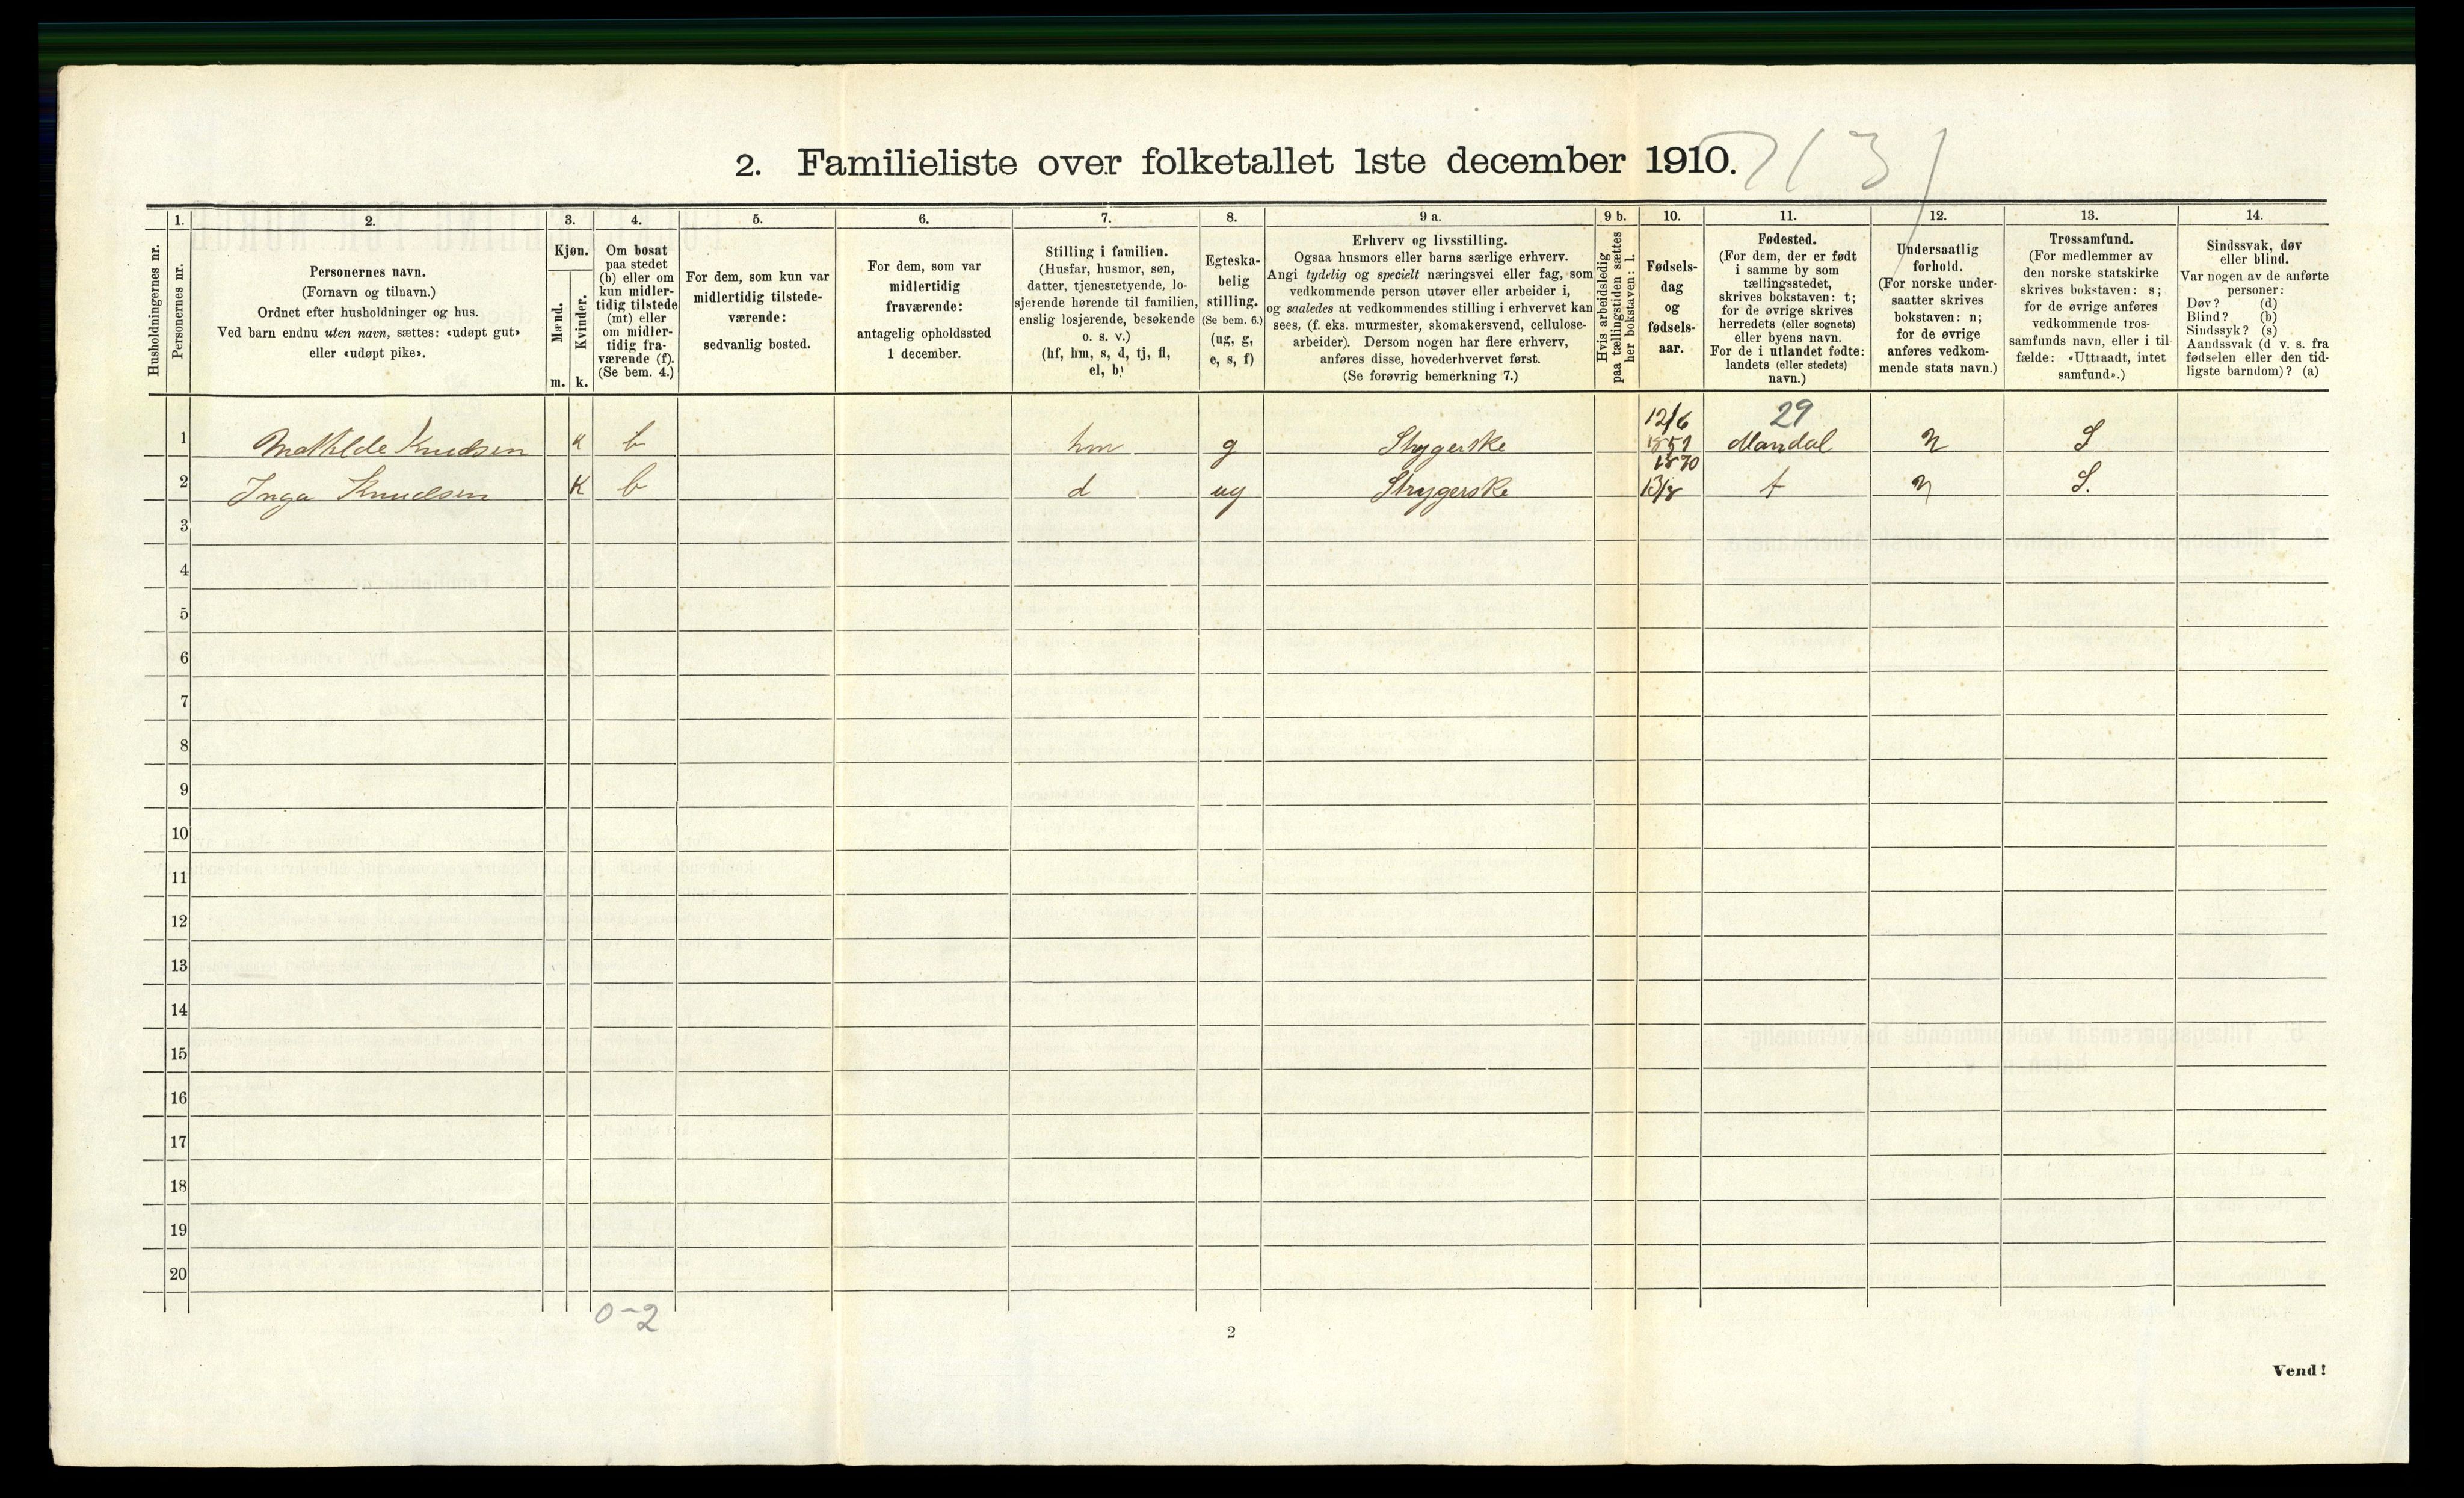 2. Familieliste over folketallet 1ste december 1910.
Husholdningernes nr.
1.
Personernes nr.
2.
Personernes navn.
(Fornavn og tilnavn.)
Ordnet efter husholdninger og hus.
Ved barn endnu uten navn, sættes: «udøpt gut»
eller «udøpt pike».
3.
Kjøn.
Mænd.
Kvinder.
m. k.
4.
Om bosat
paa stedet
(b) eller om
kun midler-
tidig tilstede
(mt) eller
om midler-
tidig fra-
værende (f).
(Se bem. 4.)
5.
For dem, som kun var
midlertidig tilstede-
værende:
sedvanlig bosted.
6.
For dem, som var
midlertidig
fraværende:
antagelig opholdssted
1 december.
7.
Stilling i familien.
(Husfar, husmor, søn,
datter, tjenestetyende, lo-
sjerende hørende til familien,
enslig losjerende, besøkende
o. s. v.)
(hf, hm, s, d, tj, fl,
el, b)
8.
Egteska-
belig
stilling.
(Se bem. 6.)
(ug, g,
e, s, f)
9 a.
Erhverv og livsstilling.
Ogsaa husmors eller barns særlige erhverv.
Angi tydelig og specielt næringsvei eller fag, som
vedkommende person utøver eller arbeider i,
og saaledes at vedkommendes stilling i erhvervet kan
sees, (f. eks. murmester, skomakersvend, cellulose-
arbeider). Dersom nogen har flere erhverv,
anføres disse, hovederhvervet først.
(Se forøvrig bemerkning 7.)
9 b.
Hvis arbeidsledig
paa tællingstiden sættes
her bokstaven: l.
10.
Fødsels-
dag
og
fødsels-
aar.
11.
Fødested.
(For dem, der er født
i samme by som
tællingsstedet,
skrives bokstaven: t;
for de øvrige skrives
herredets (eller sognets)
eller byens navn.
For de i utlandet fødte:
landets (eller stedets)
navn.)
12.
Undersaatlig
forhold.
(For norske under-
saatter skrives
bokstaven: n;
for de øvrige
anføres vedkom-
mende stats navn.)
13.
Trossamfund.
(For medlemmer av
den norske statskirke
skrives bokstaven: s;
for de øvrige anføres
vedkommende tros-
samfunds navn, eller i til-
fælde: «Uttraadt, intet
samfund».)
14.
Sindssvak, døv
eller blind.
Var nogen av de anførte
personer:
Døv? (d)
Blind? (b)
Sindssyk? (s)
Aandssvak (d v. s. fra
fødselen eller den tid-
ligste barndom)? (a)
12/6 29
1 Mathilde Knudsen K b hm g Strygerske Mandal n S
1870
2 Inga Knudsen K b d ug Strygerske 13/8 t n S.
3
4
5
6
7
8
9
10
11
12
13
14
15
16
17
18
19
20
0-2
2
Vend!